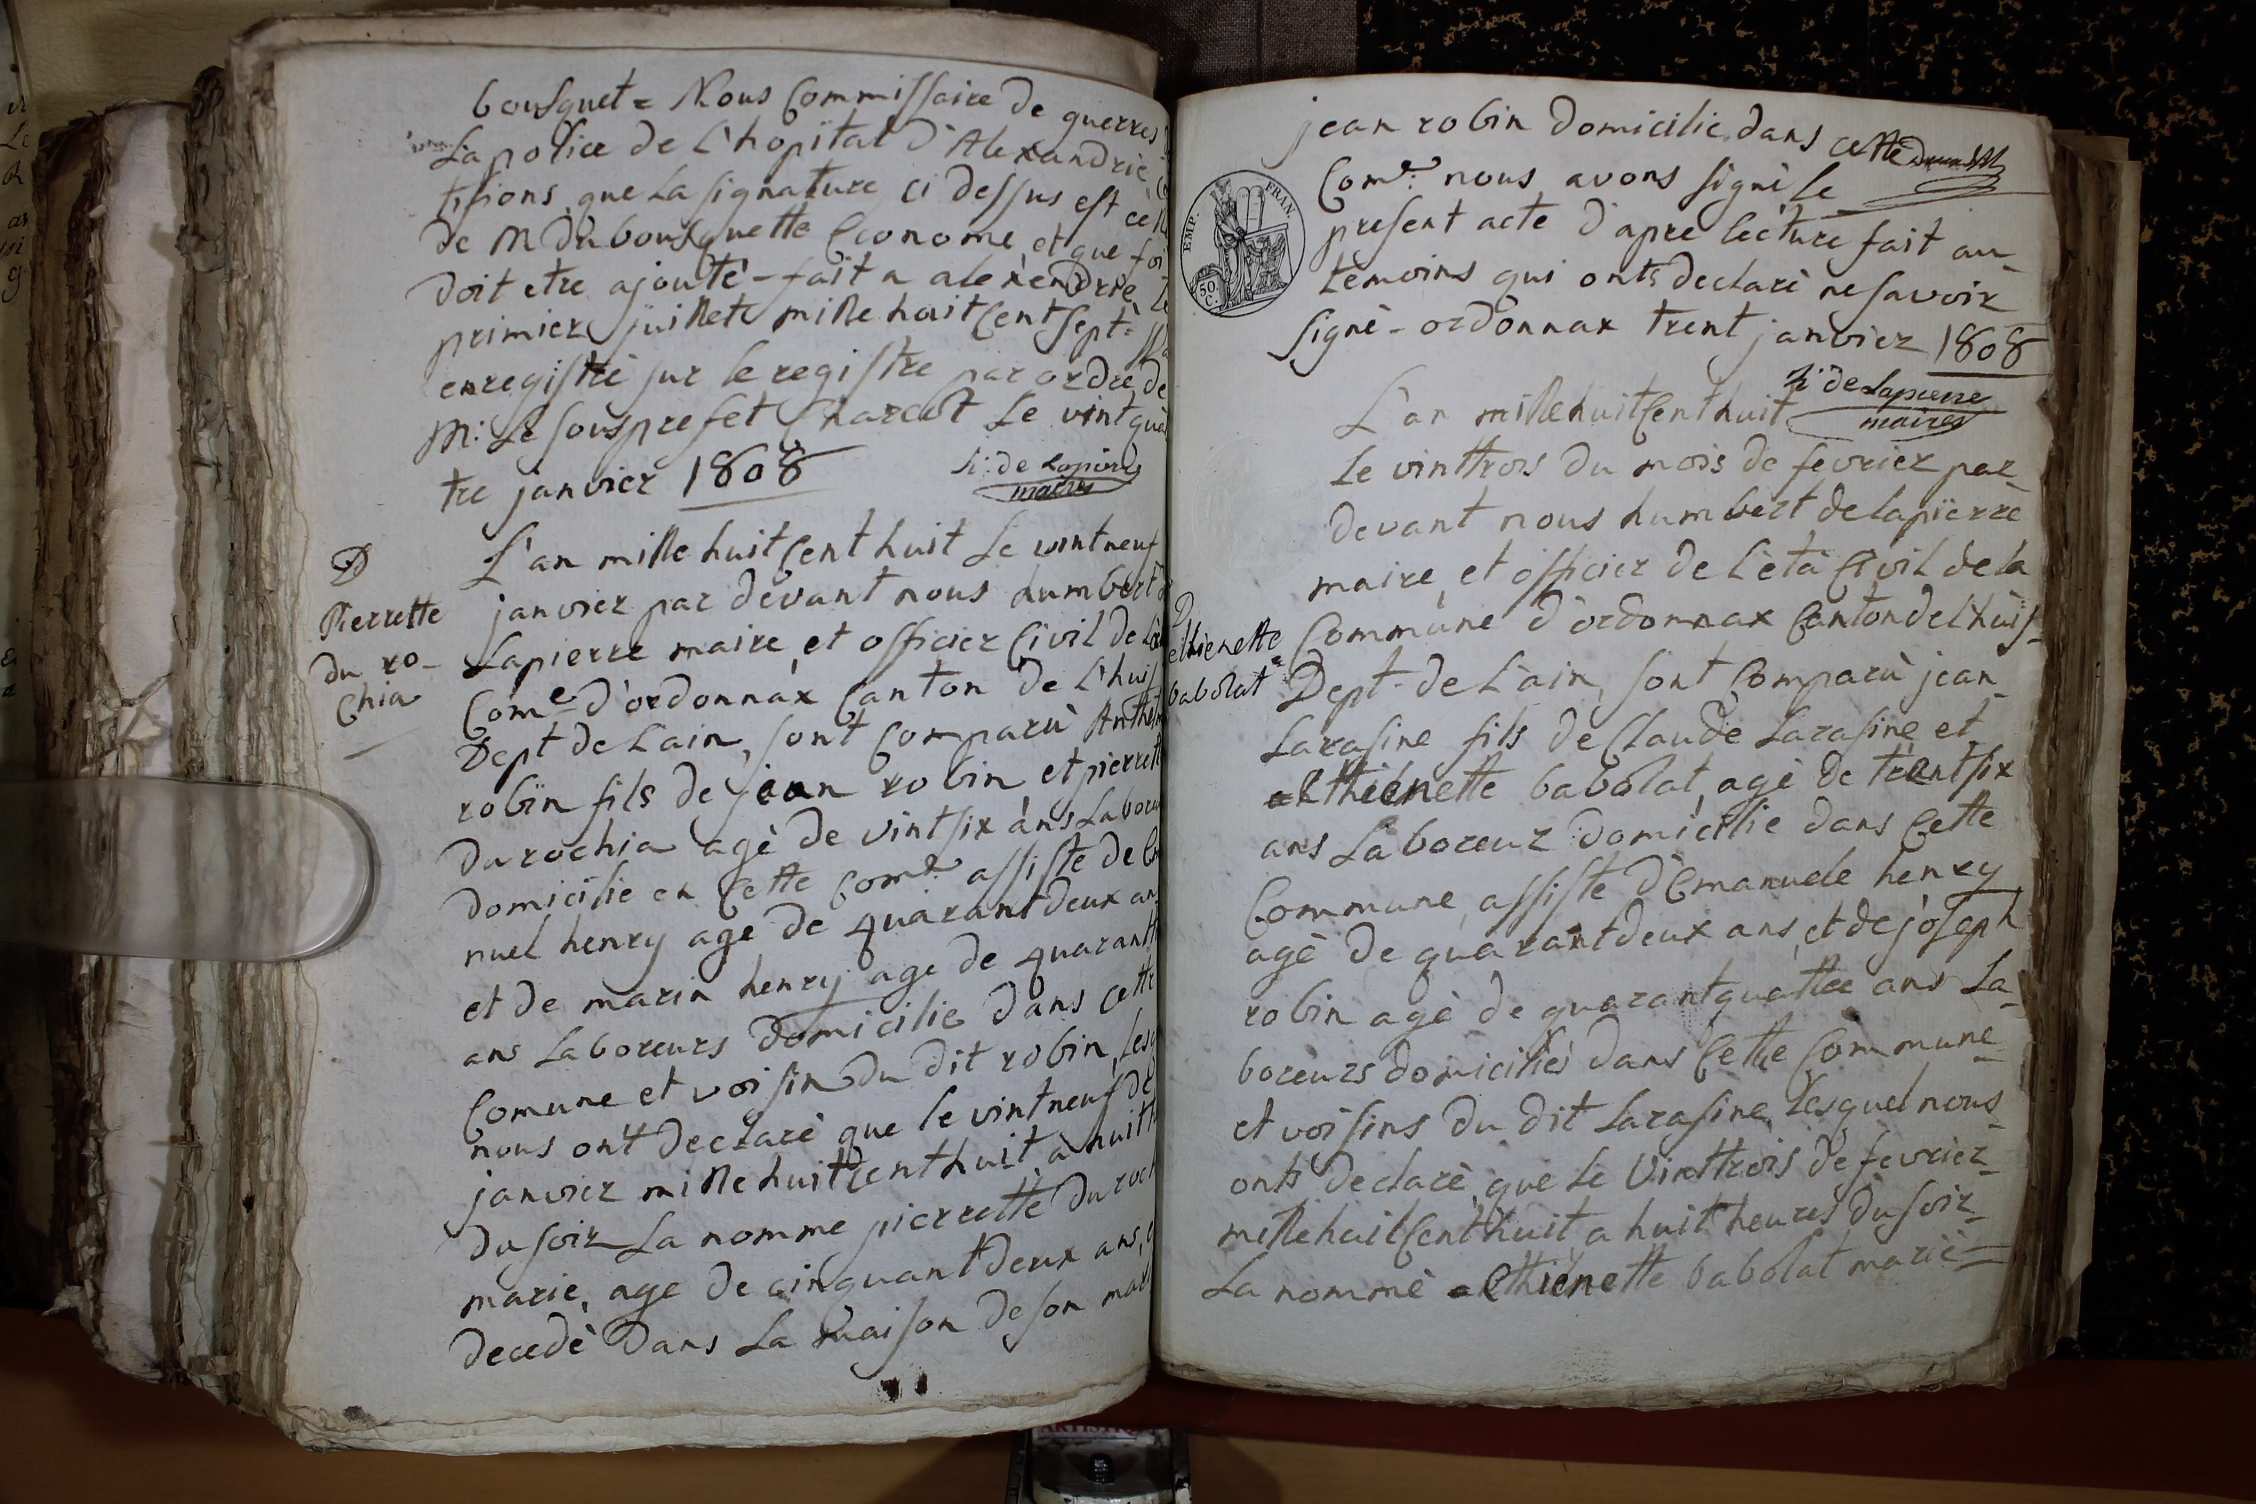 bousquet = Nous Commissaire de guerres
La police de L'hopital d'Alexandrie
tifions que La signature ci dessus est cell
de M dubousquette Econome et que foi
doit etre ajouté - fait a alexendrie Le
primier juillet mille huit Cent Sept =
enregistré sur le registre par ordre de
Mr: Le sousprefet Le vint qua
tre janvier 1808
hi: de Lapierre
maire
D
Pierrette
du ro-
Chia
L'an mille huit Cent huit Le vint neuf
janvier par devant nous humbert
Lapierre maire, et officier Civil de
Come d'ordonnax Canton de L'huis
Dept de L'ain, sont Comparù Anthel
robin fils de jean robin et pierrette
durochia agè de vintsix ans Labour
domicilie en Cette Come assiste de
nuel henry age de quarantdeux an
et de marin henry age de quarantt
ans Laboreurs domicilie dans cette
Comune et voisin du dit robin, Lesq
nous ont declarè que le vintneuf de
janvier mille huit Cent huit à huitt
du soir La nomme pierrette duroch
marie, age de cinquantdeux ans,
decedè dans La maison de son mari
jean robin domicilie dans cette
Come: nous avons signè le
EMP. FRAN.
50 C.
present acte d'apre lècture fait au-
temoins qui onts declarè ne savoir
signè - ordonnax trent janvier 1808
hi: de Lapierre
maire
L'an mille huit Cent huit
Le vinttrois du mois de fevrier par-
devant nous humbert delapierre
maire, et officier de L'età Civil de la
D
ethienette
babolat
Commune d'ordonnax Canton de l'huis-
Dept. de L'ain, sont Comparù jean-
Larasine fils de Claude Larasine et
ethienette babolat, agè de trentsix
ans Laboreur domicilie dans Cette
Commune, assiste d'Emanuele henry
agè de quarantdeux ans, et de joseph
robin agè de quarantquattre ans La-
boreurs domiciliés dans Cette Commune-
et voisins du dit Larasine, Lesquel nous-
onts declarè, que Le Vinttrois de fevrier-
mille huit Cent huit a huit heures du soir-
La nommè ethienette babolat mariè-